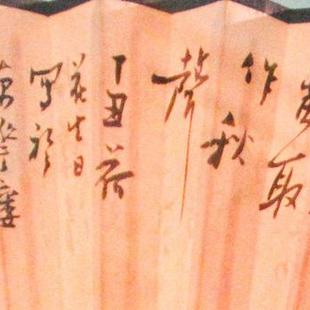 取
作秋
聲
丁丑荷
花生日
寫於